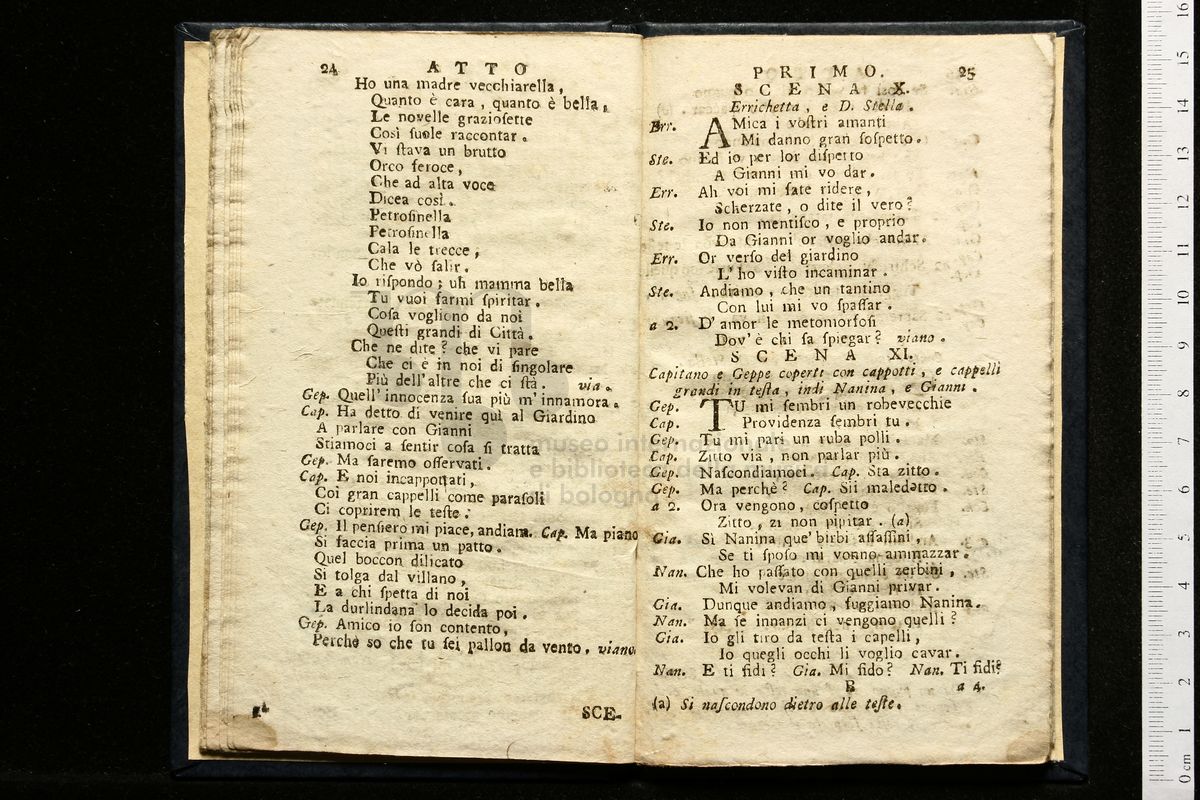 24 ATTO
Ho una madre vecchiarella,
Quanto è cara, quanto è bella,
Le novelle graziosette
Così suole raccontar.
Vi stava un brutto
Orco feroce,
Che ad alta voce
Dicea così.
Petrosinella
Petrosinella
Cala le trecce,
Che vò salir.
Io rispondo; uh mamma bella
Tu vuoi farmi spiritar.
Cosa vogliono da noi
Questi grandi di Città.
Che ne dite? che vi pare
Che ci è in noi di singolare
Più dell'altre che ci stà. via.
Gep. Quell'innocenza sua più m'innamora.
Cap. Ha detto di venire quì al Giardino
A parlare con Gianni
Stiamoci a sentir cosa si tratta
Gep. Ma saremo osservati.
Cap. E noi incappottati,
Coi gran cappelli come parasoli
Ci coprirem le teste.
Gep. Il pensiero mi piace, andiam. Cap. Ma piano
Si faccia prima un patto.
Quel boccon dilicato
Si tolga dal villano,
E a chi spetta di noi
La durlindana lo decida poi.
Gep. Amico io son contento,
Perchè so che tu sei pallon da vento. viano.
SCE-
PRIMO. 25
SCENA X.
Errichetta, e D. Stella.
Err. AMica i vostri amanti
Mi danno gran sospetto.
Ste. Ed io per lor dispetto
A Gianni mi vo dar.
Err. Ah voi mi fate ridere,
Scherzate, o dite il vero?
Ste. Io non mentisco, e proprio
Da Gianni or voglio andar.
Err. Or verso del giardino
L'ho visto incaminar.
Ste. Andiamo, che un tantino
Con lui mi vo spassar.
a 2. D'amor le metomorfosi
Dov'è chi sa spiegar? viano.
SCENA XI.
Capitano e Geppe coperti con cappotti, e cappelli
grandi in testa, indi Nanina, e Gianni.
Gep. TU mi sembri un robevecchie
Cap. Providenza sembri tu.
Gep. Tu mi pari un ruba polli.
Cap. Zitto via, non parlar più.
Gep. Nascondiamoci. Cap. Sta zitto.
Gep. Ma perchè? Cap. Sii maledetto.
a 2. Ora vengono, cospetto
Zitto, zi non pipitar. (a)
Gia. Sì Nanina que' birbi assassini,
Se ti sposo mi vonno amnazzar.
Nan. Che ho passato con quelli zerbini,
Mi volevan di Gianni privar.
Gia. Dunque andiamo, fuggiamo Nanina.
Nan. Ma se innanzi ci vengono quelli?
Gia. Io gli tiro da testa i capelli,
Io quegli occhi li voglio cavar.
Nan. E ti fidi? Gia. Mi fido? Nan. Ti fidi?
B a 4.
(a) Si nascondono dietro alle teste.
museo internazionale
e biblioteca della musica
di bologna